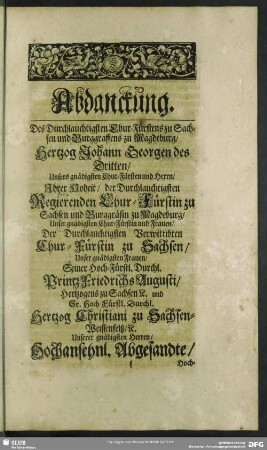 Abdanckung.
Des Durchlauchtigsten Chur-Fürstens zu Sach-
sen und Burggraffens zu Magdeburg/
Hertzog Johann Georgen des
Dritten/
Unsers gnädigsten Chur-Fürsten und Herrn/
Ihrer Hoheit/ der Durchlauchtigsten
Regierenden Chur-Fürstin zu
Sachsen und Burggräfin zu Magdeburg/
Unser gnädigsten Chur-Fürstin und Frauen/
Der Durchlauchtigsten Verwitibten
Chur-Fürstin zu Sachsen/
Unser gnädigsten Frauen/
Seiner Hoch-Fürstl. Durchl.
Printz Friedrichs Augusti/
Hertzogens zu Sachsen &c. und
Sr. Hoch Fürstl. Durchl.
Hertzog Christiani zu Sachsen-
Weissenfels/&c.
Unserer gnädigsten Herren/
Hochansehnl. Abgesandte/
Hoch-
SLUB
DFG